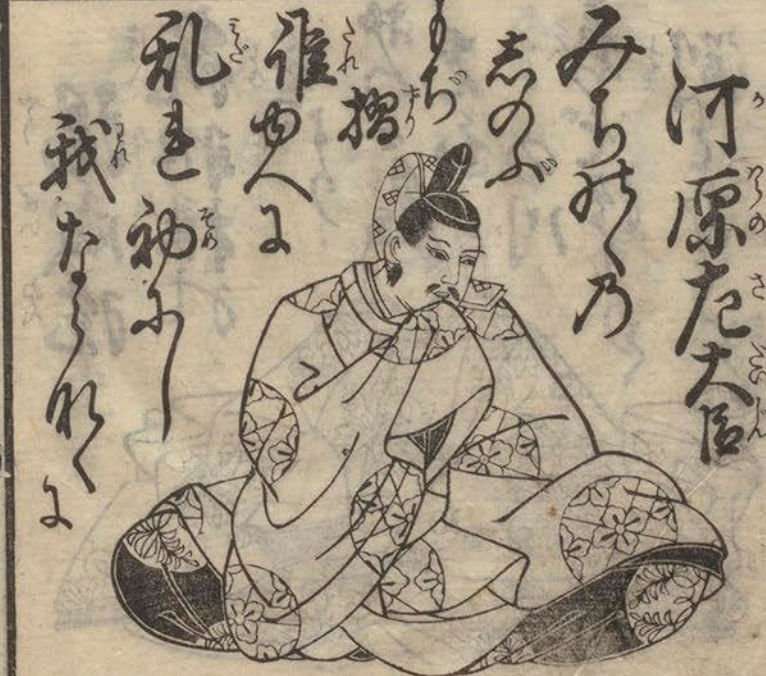 河原左大臣
みちのくの
志のふ
もぢ摺
誰ゆへに
乱れ初にし
我ならなくに